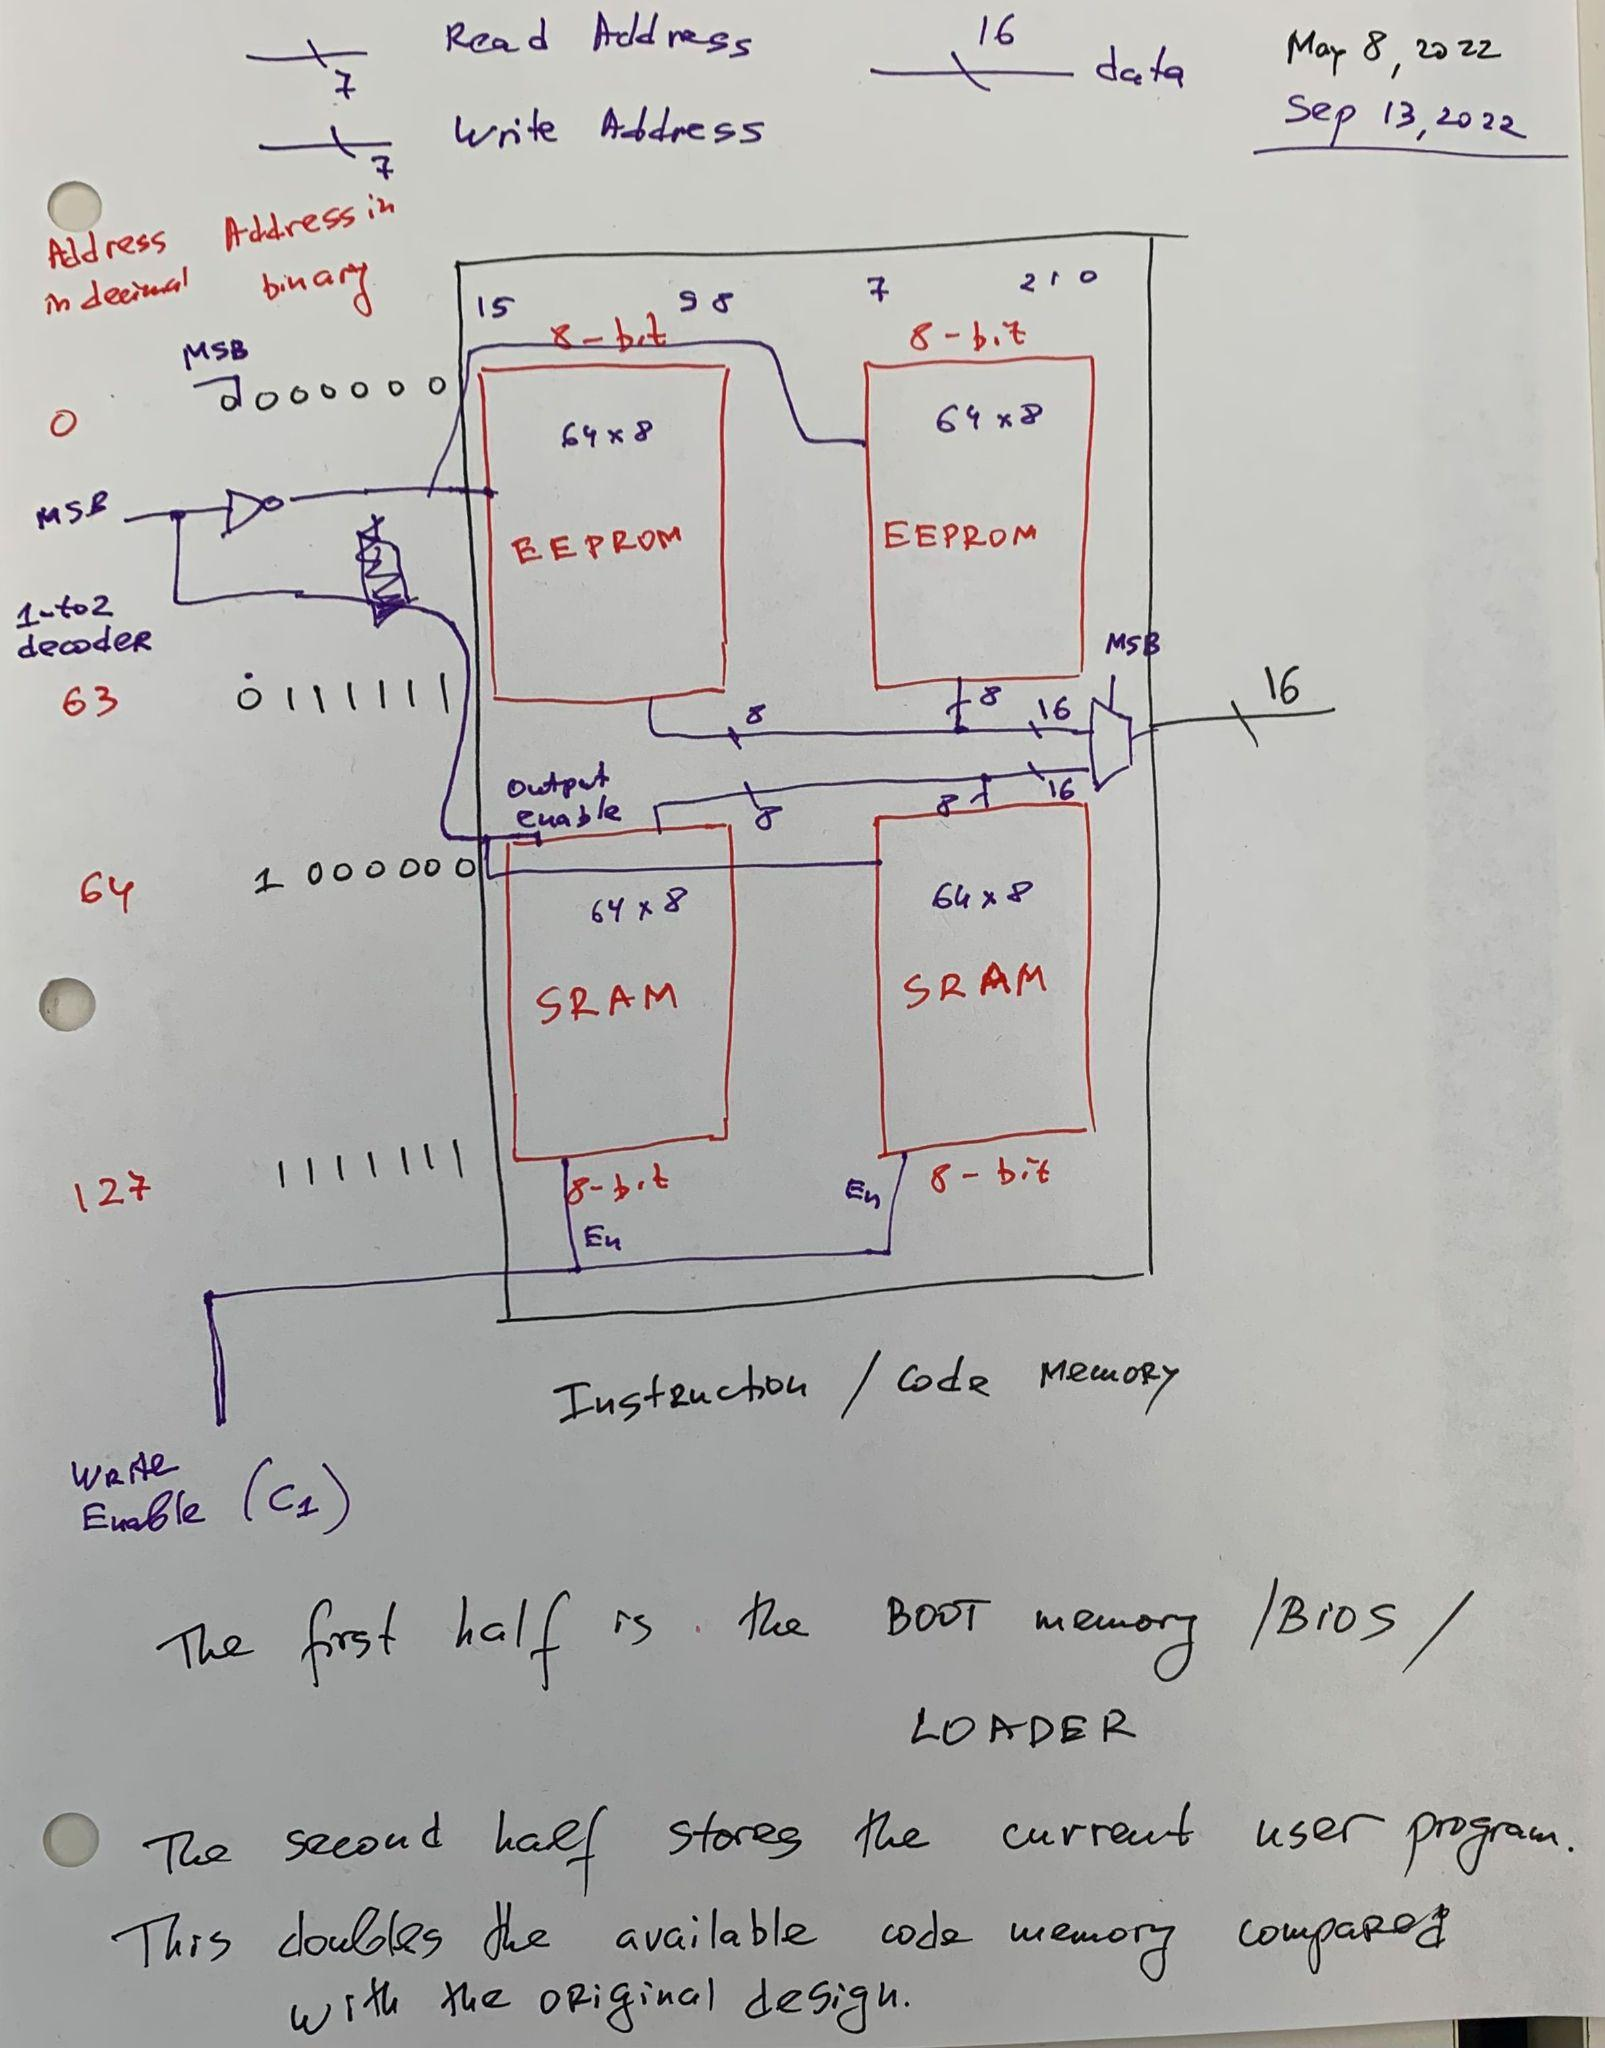 7 Read Address
16 data
May 8, 2022
7 Write Address
Sep 13, 2022
Address in decimal
Address in binary
15 9 8 7 2 1 0
8-bit 8-bit
MSB
0 0000000
64 x 8 64 x 8
MSB
EEPROM EEPROM
1-to2 decoder
MSB
63 0111111
8 8 16 16
Output enable
8 8 16
64 1000000
64 x 8 64 x 8
SRAM SRAM
127 1111111
8-bit En 8-bit
En
Instruction / Code Memory
Write
Enable (C1)
The first half is the BOOT memory /BIOS/
LOADER
The second half stores the current user program.
This doubles the available code memory compared
with the original design.